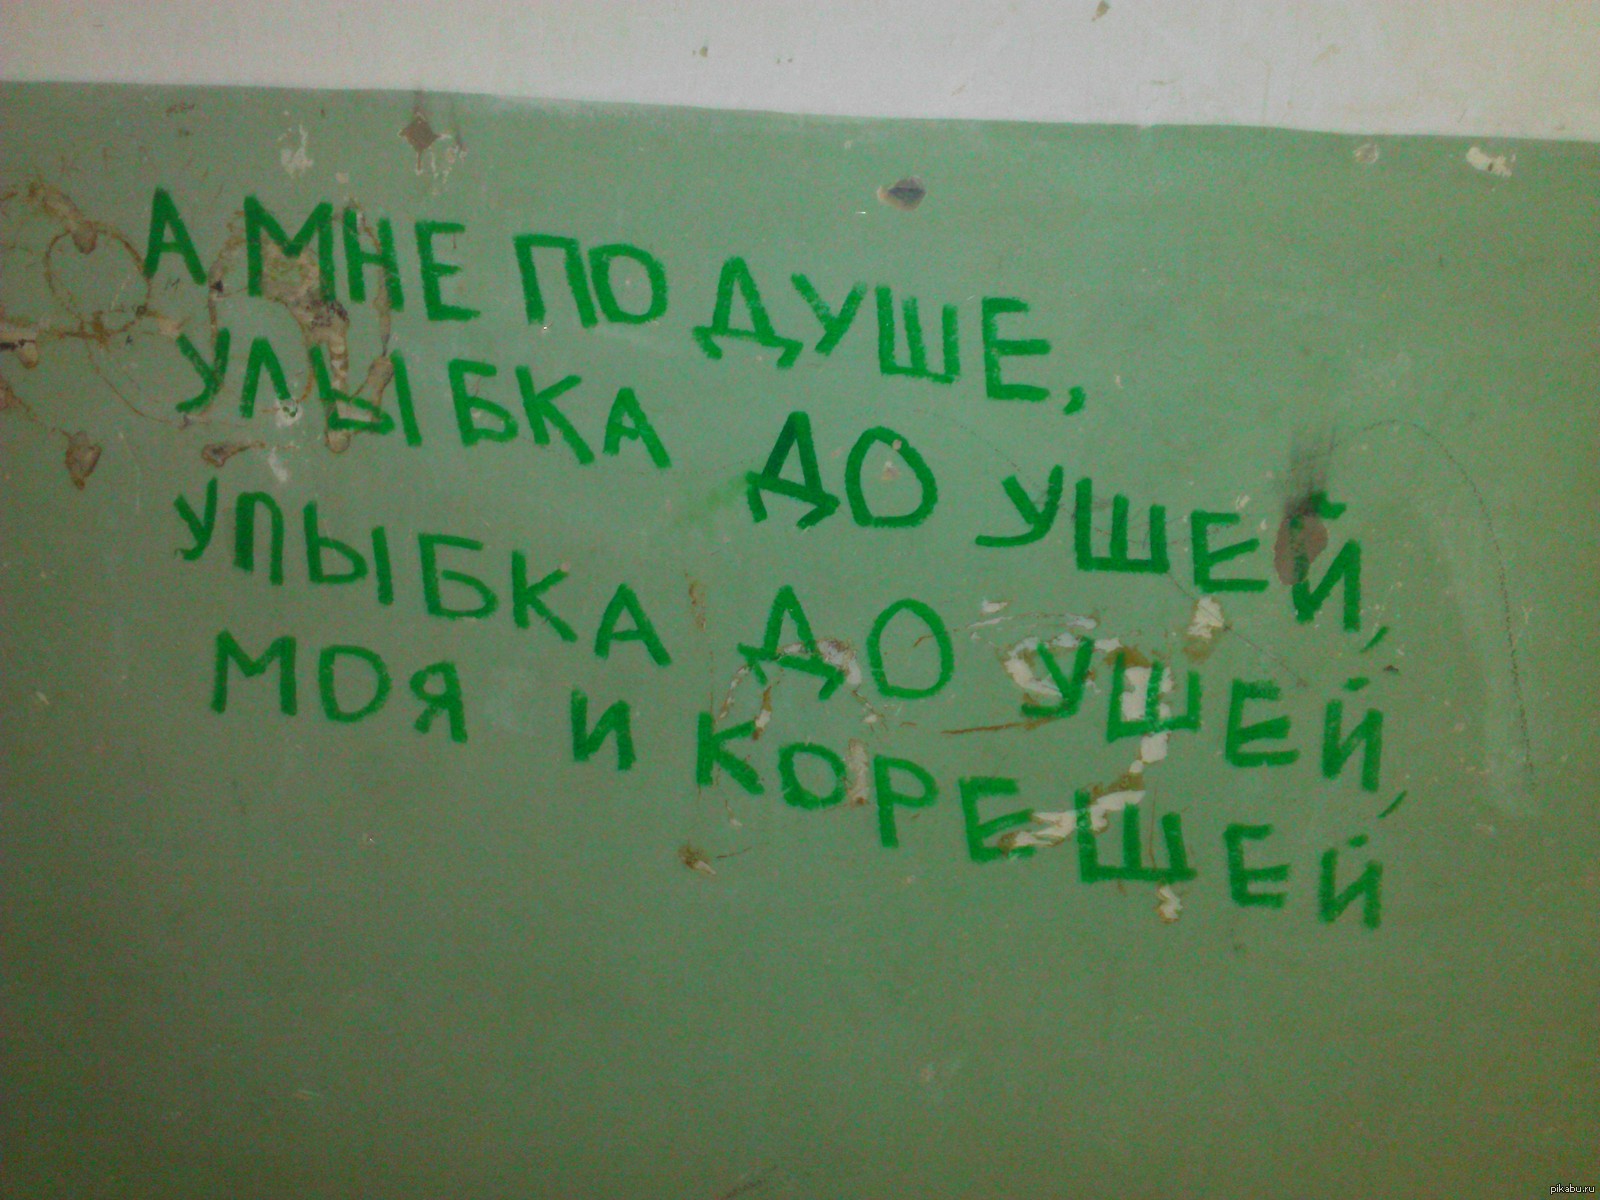 А МНЕ ПО ДУШЕ,
УЛЫБКА ДО УШЕЙ,
УПЫБКА ДО УШЕЙ,
МОЯ И КОРЕШЕЙ
pikabu.ru